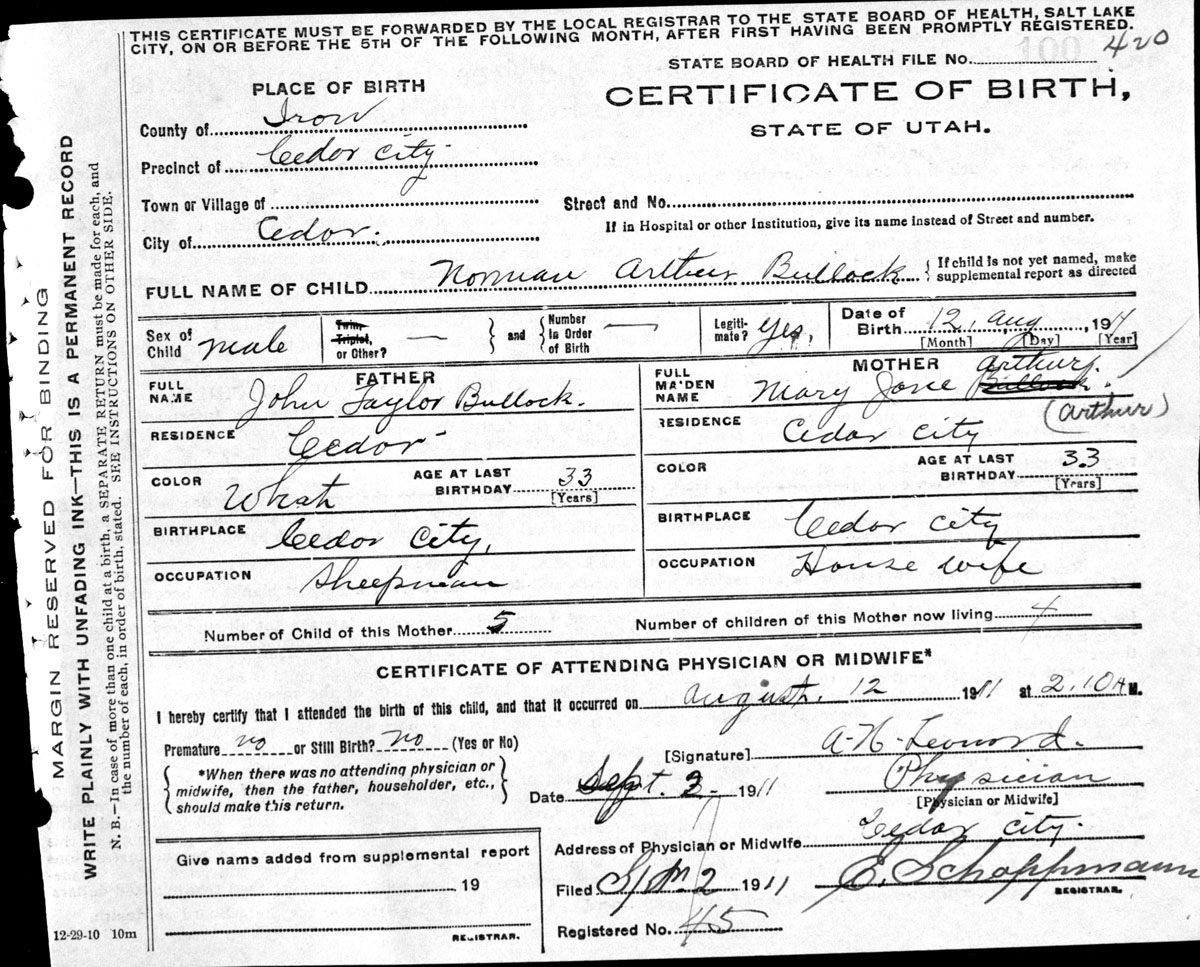 THIS CERTIFICATE MUST BE FORWARDED BY THE LOCAL REGISTRAR TO THE STATE BOARD OF HEALTH, SALT LAKE
CITY, ON OR BEFORE THE 5TH OF THE FOLLOWING MONTH, AFTER FIRST HAVING BEEN PROMPTLY REGISTERED.
100
STATE BOARD OF HEALTH FILE No. 420
PLACE OF BIRTH
CERTIFICATE OF BIRTH,
STATE OF UTAH.
County of Iron
Precinct of Cedor City
Town or Village of
Street and No.
If in Hospital or other Institution, give its name instead of Street and number.
City of Cedor.
FULL NAME OF CHILD Norman Arthur Bullock { If child is not yet named, make
supplemental report as directed
Sex of Child male
Twin, Triplet, or Other? —
and
Number in Order of Birth —
Legitimate? Yes,
Date of Birth 12, Aug, 1911
[Month] [Day] [Year]
FATHER
FULL NAME John Taylor Bullock.
RESIDENCE Cedor
COLOR Whit
AGE AT LAST BIRTHDAY 33
[Years]
BIRTHPLACE Cedor City,
OCCUPATION Sheepman
MOTHER
FULL MAIDEN NAME Mary Jane Bullock. Arthur
(Arthur)
RESIDENCE Cedar City
COLOR
AGE AT LAST BIRTHDAY 33
[Years]
BIRTHPLACE Cedor City
OCCUPATION House wife
Number of Child of this Mother 5
Number of children of this Mother now living 4
CERTIFICATE OF ATTENDING PHYSICIAN OR MIDWIFE*
I hereby certify that I attended the birth of this child, and that it occurred on August. 12 1911 at 2.10 A M.
Premature no or Still Birth? no (Yes or No)
{ *When there was no attending physician or
midwife, then the father, householder, etc.,
should make this return. }
[Signature] A-N-Leonord.
Date Sept. 2- 1911
Physician
[Physician or Midwife]
Address of Physician or Midwife Cedar City.
Give name added from supplemental report
19
REGISTRAR.
Filed 2 1911 E. Schoppmann
REGISTRAR.
Registered No. 45
12-29-10 10m
MARGIN RESERVED FOR BINDING
WRITE PLAINLY WITH UNFADING INK—THIS IS A PERMANENT RECORD
N. B.—In case of more than one child at a birth, a SEPARATE RETURN must be made for each, and
the number of each, in order of birth, stated. SEE INSTRUCTIONS ON OTHER SIDE.